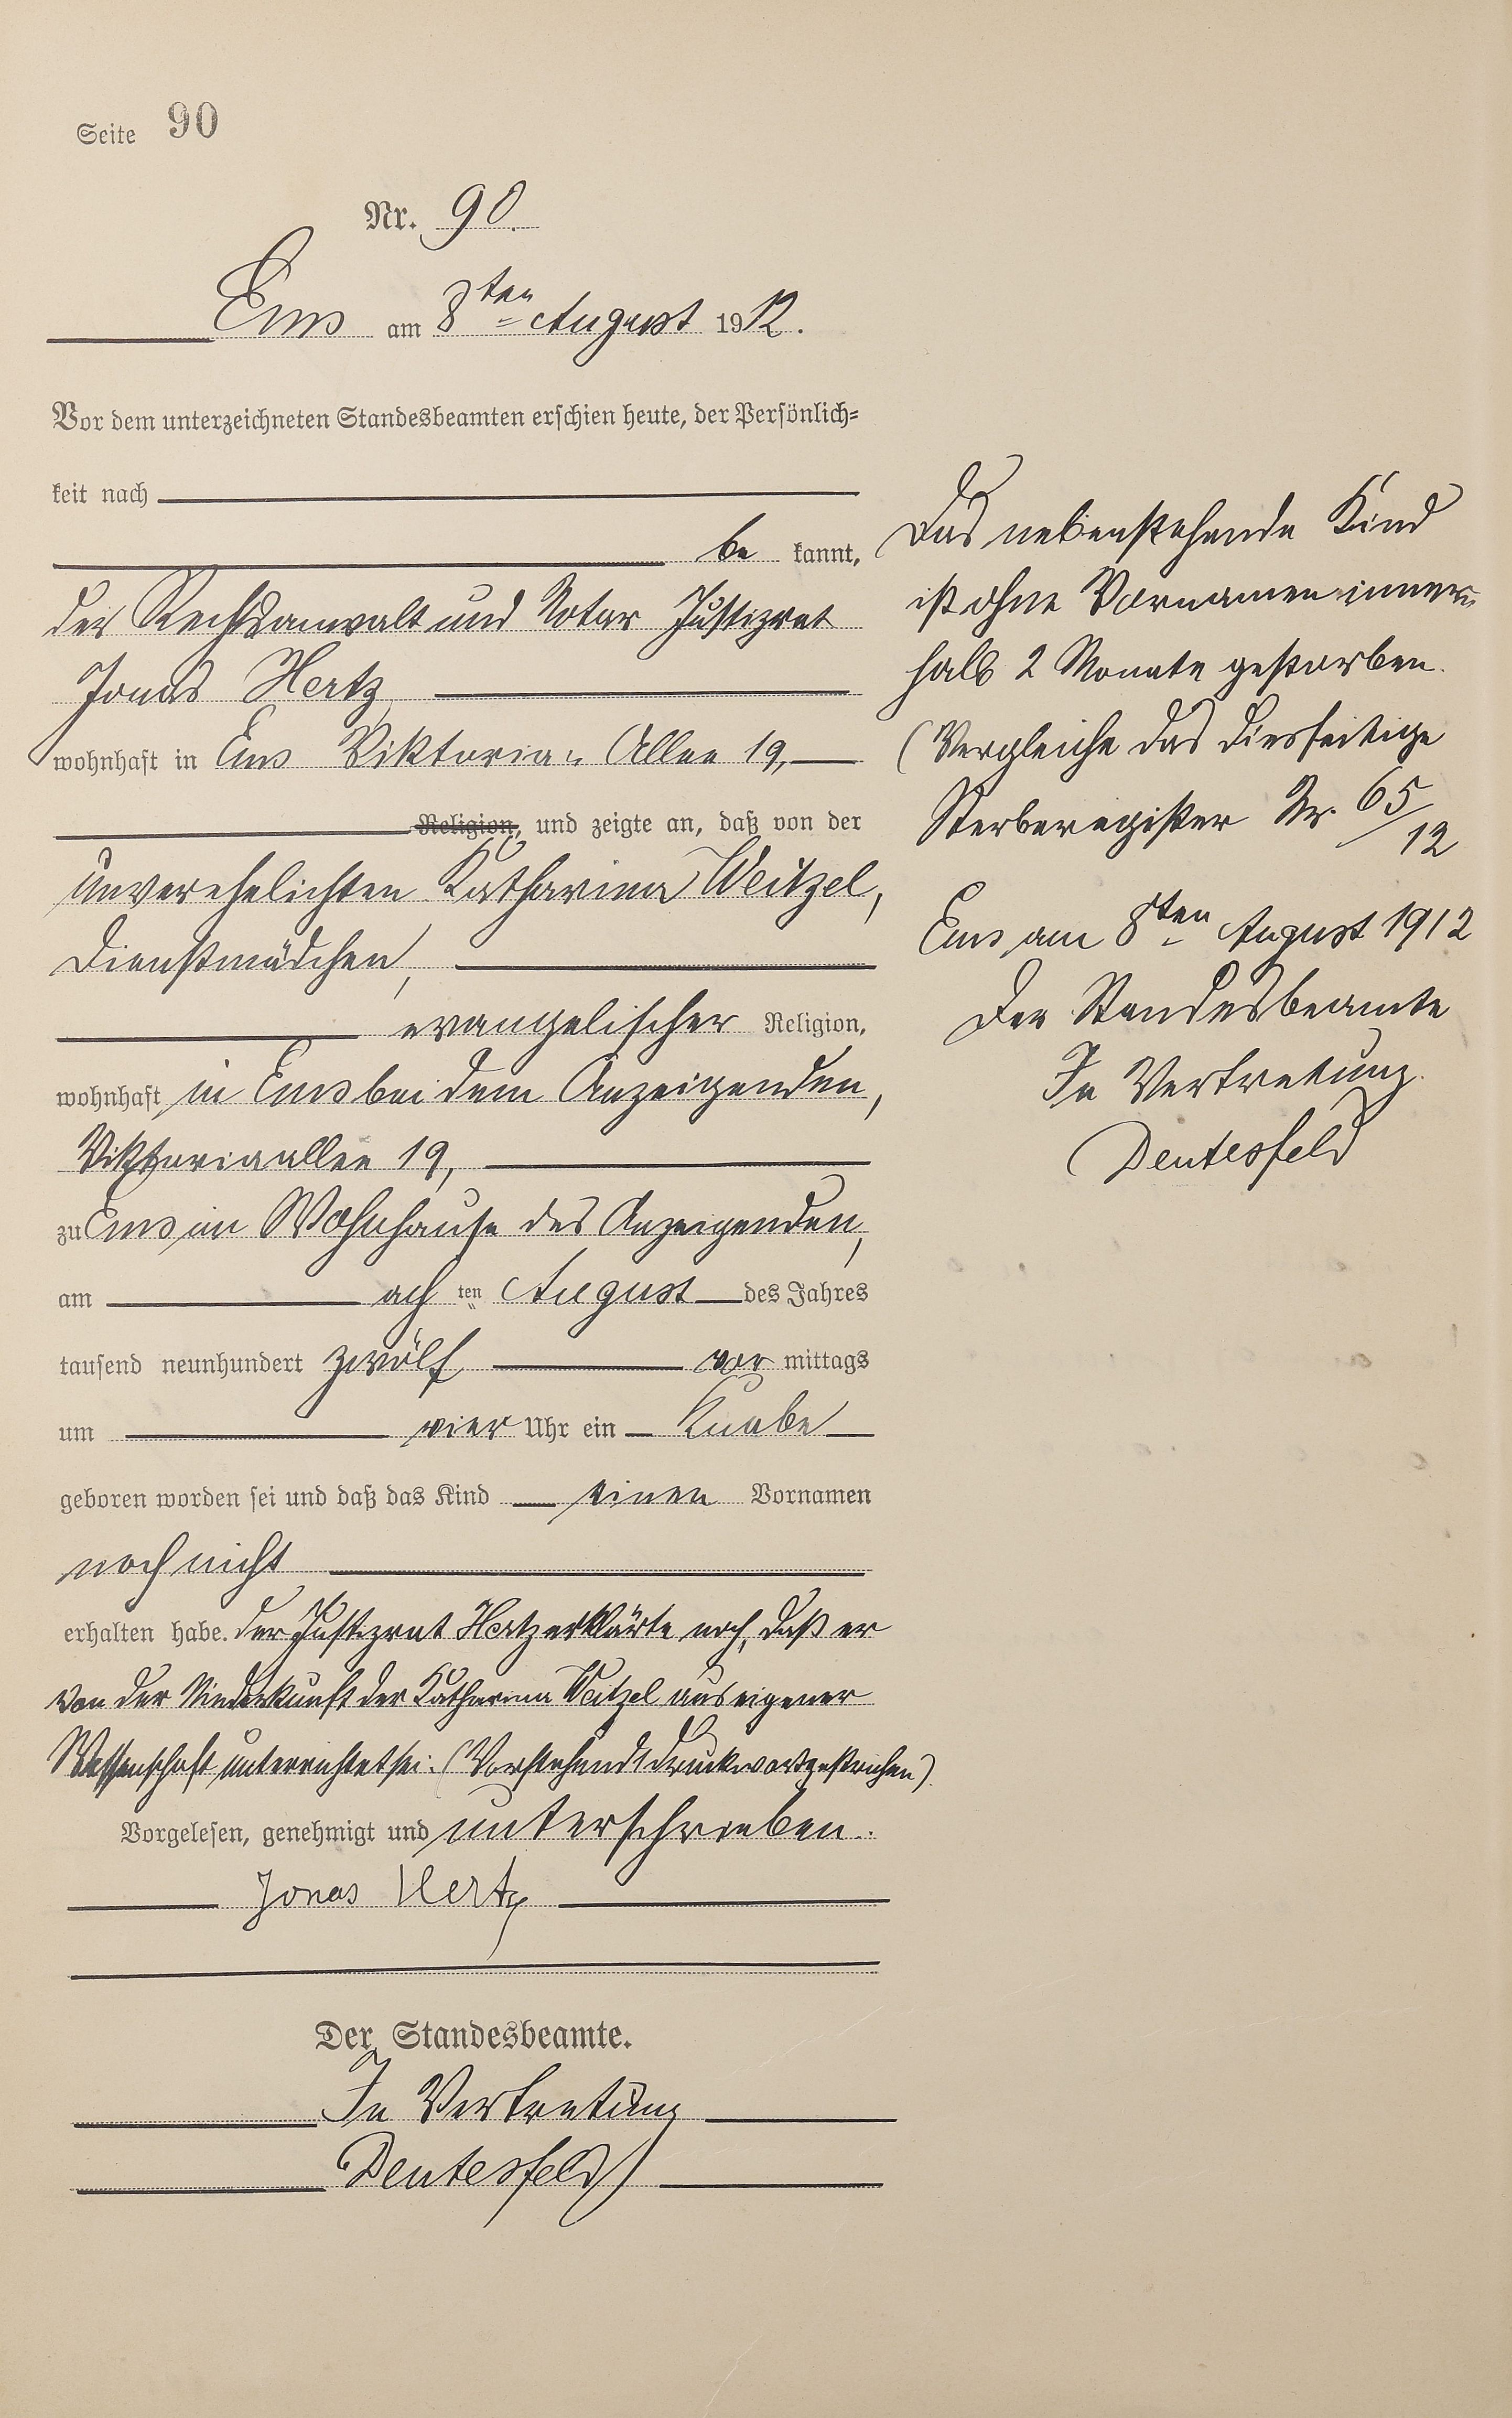 Seite 90
Nr. 90.
Ems am 8ten August 1912.
Vor dem unterzeichneten Standesbeamten erschien heute, der Persönlich-
keit nach
be kannt,
der Rechtsanwalt und Notar Justizrat
Jonas Hertz
wohnhaft in Ems Viktoria-Allee 19,
Religion, und zeigte an, daß von der
unverehelichten Katharina Weitzel,
Dienstmädchen,
evangelischer Religion,
wohnhaft in Ems bei dem Anzeigenden,
Viktoriaallee 19,
zu Ems im Wohnhause des Anzeigenden,
am ach ten August des Jahres
tausend neunhundert zwölf vor mittags
um vier Uhr ein Knabe
geboren worden sei und daß das Kind einen Vornamen
noch nicht
erhalten habe. Der Justizrat Hertz erklärte noch, daß er
von der Niederkunft der Katharina Weitzel aus eigener
Wissenschaft unterrichtet sei. (Vorstehend 1 Druckwort gestrichen)
Vorgelesen, genehmigt und unterschrieben.
Jonas Hertz
Der Standesbeamte.
In Vertretung
Deutesfeld
Das nebenstehende Kind
ist ohne Vornamen inner-
halb 2 Monate gestorben.
(Vergleiche das diesseitige
Sterberegister Nr. 65/12
Ems am 8ten August 1912
Der Standesbeamte
In Vertretung.
Deutesfeld